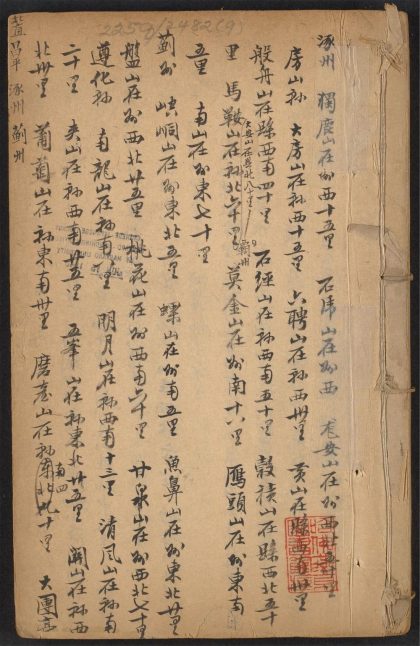 2259/2482(9)
涿州　獨鹿山在州西十五里　石虎山在州西　老安山在州西北五十里
房山縣　大房山在縣西十五里　六聘山在縣西卅里　黃山在縣西南卅里
般舟山在縣西南四十里　石經山在縣西南五十里　穀積山在縣西北五十
里　馬鞍山在縣北六十里　大安山在縣北八十里　霸州　莫金山在州南十八里　鴈頭山在州東南
五里　南山在州東七十里
薊州　崆峒山在州東北五里　螺山在州南五里　魚鼻山在州東北廿里
盤山在州西北廿五里　桃花山在州西南六十里　甘泉山在州西北七十里
遵化縣　南龍山在縣南　里　明月山在縣西南十三里　清風山在縣南
二十里　夾山在縣西南廿五里　五峯山在縣東北廿五里　山在縣西
北卅里　葡萄山在縣東南卅里　磨臺山在縣東北九十里　大團亭
南四
昌平　涿州　薊州